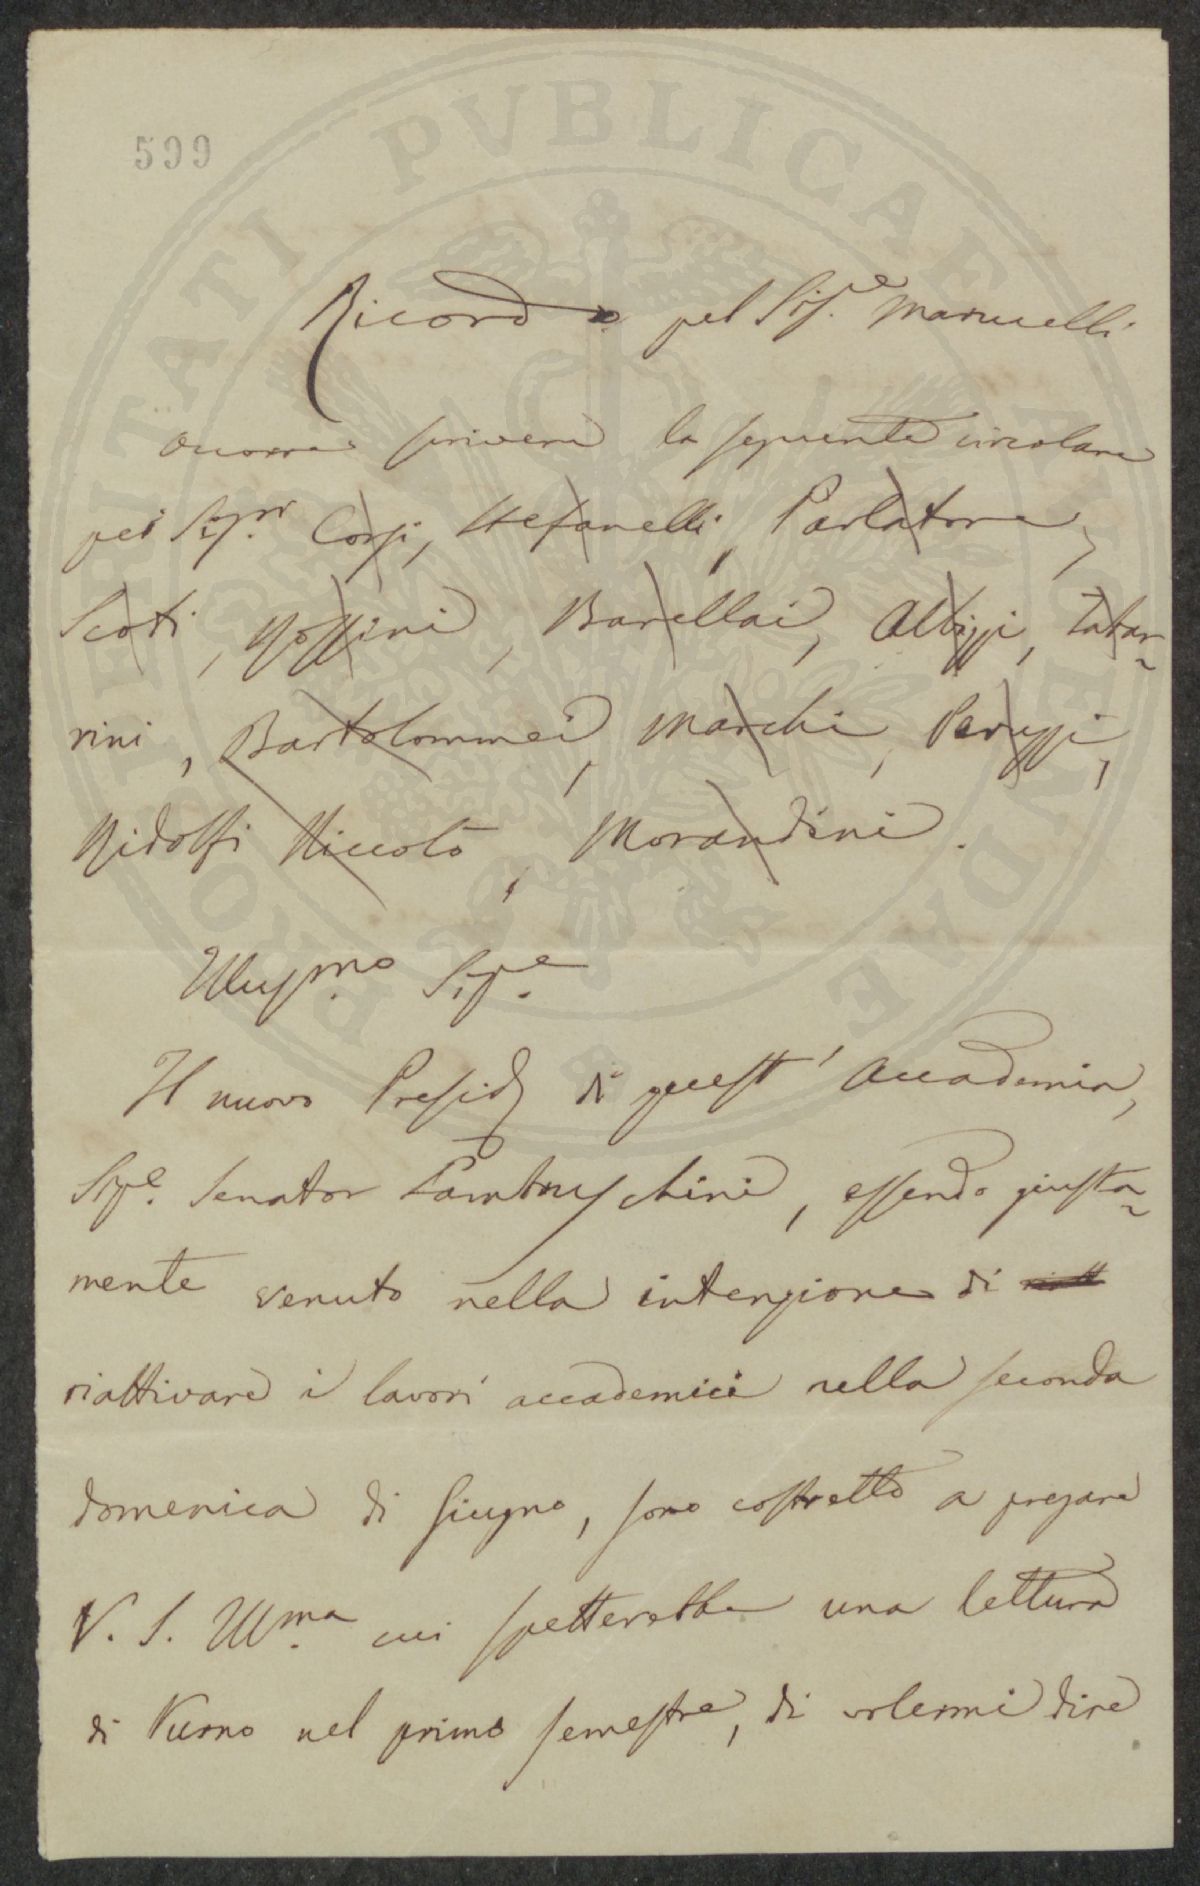 PROSPERITATI PVBLICAE AVGENDAE
599
Ricordo pel Sig.e Marucelli
Occorre scrivere la seguente circolare
pei Sig.ri Corsi, Stefanelli, Parlatore,
Scoti, Rossini, Barellai, Albizzi, Tatar-
rini, Bartolommei, Marchi, Peruzzi,
Ridolfi Niccolò, Morandini.
Illus.mo Sig.e
Il nuovo Presid. di quest' Accademia,
Sig.e Senator Lambruschini, essendo giusta-
mente venuto nella intenzione di
riattivare i lavori accademici nella seconda
domenica di Giugno, sono costretto a pregare
V. S. Ill.ma cui spetterebbe una lettura
di Turno nel primo semestre, di volermi dire